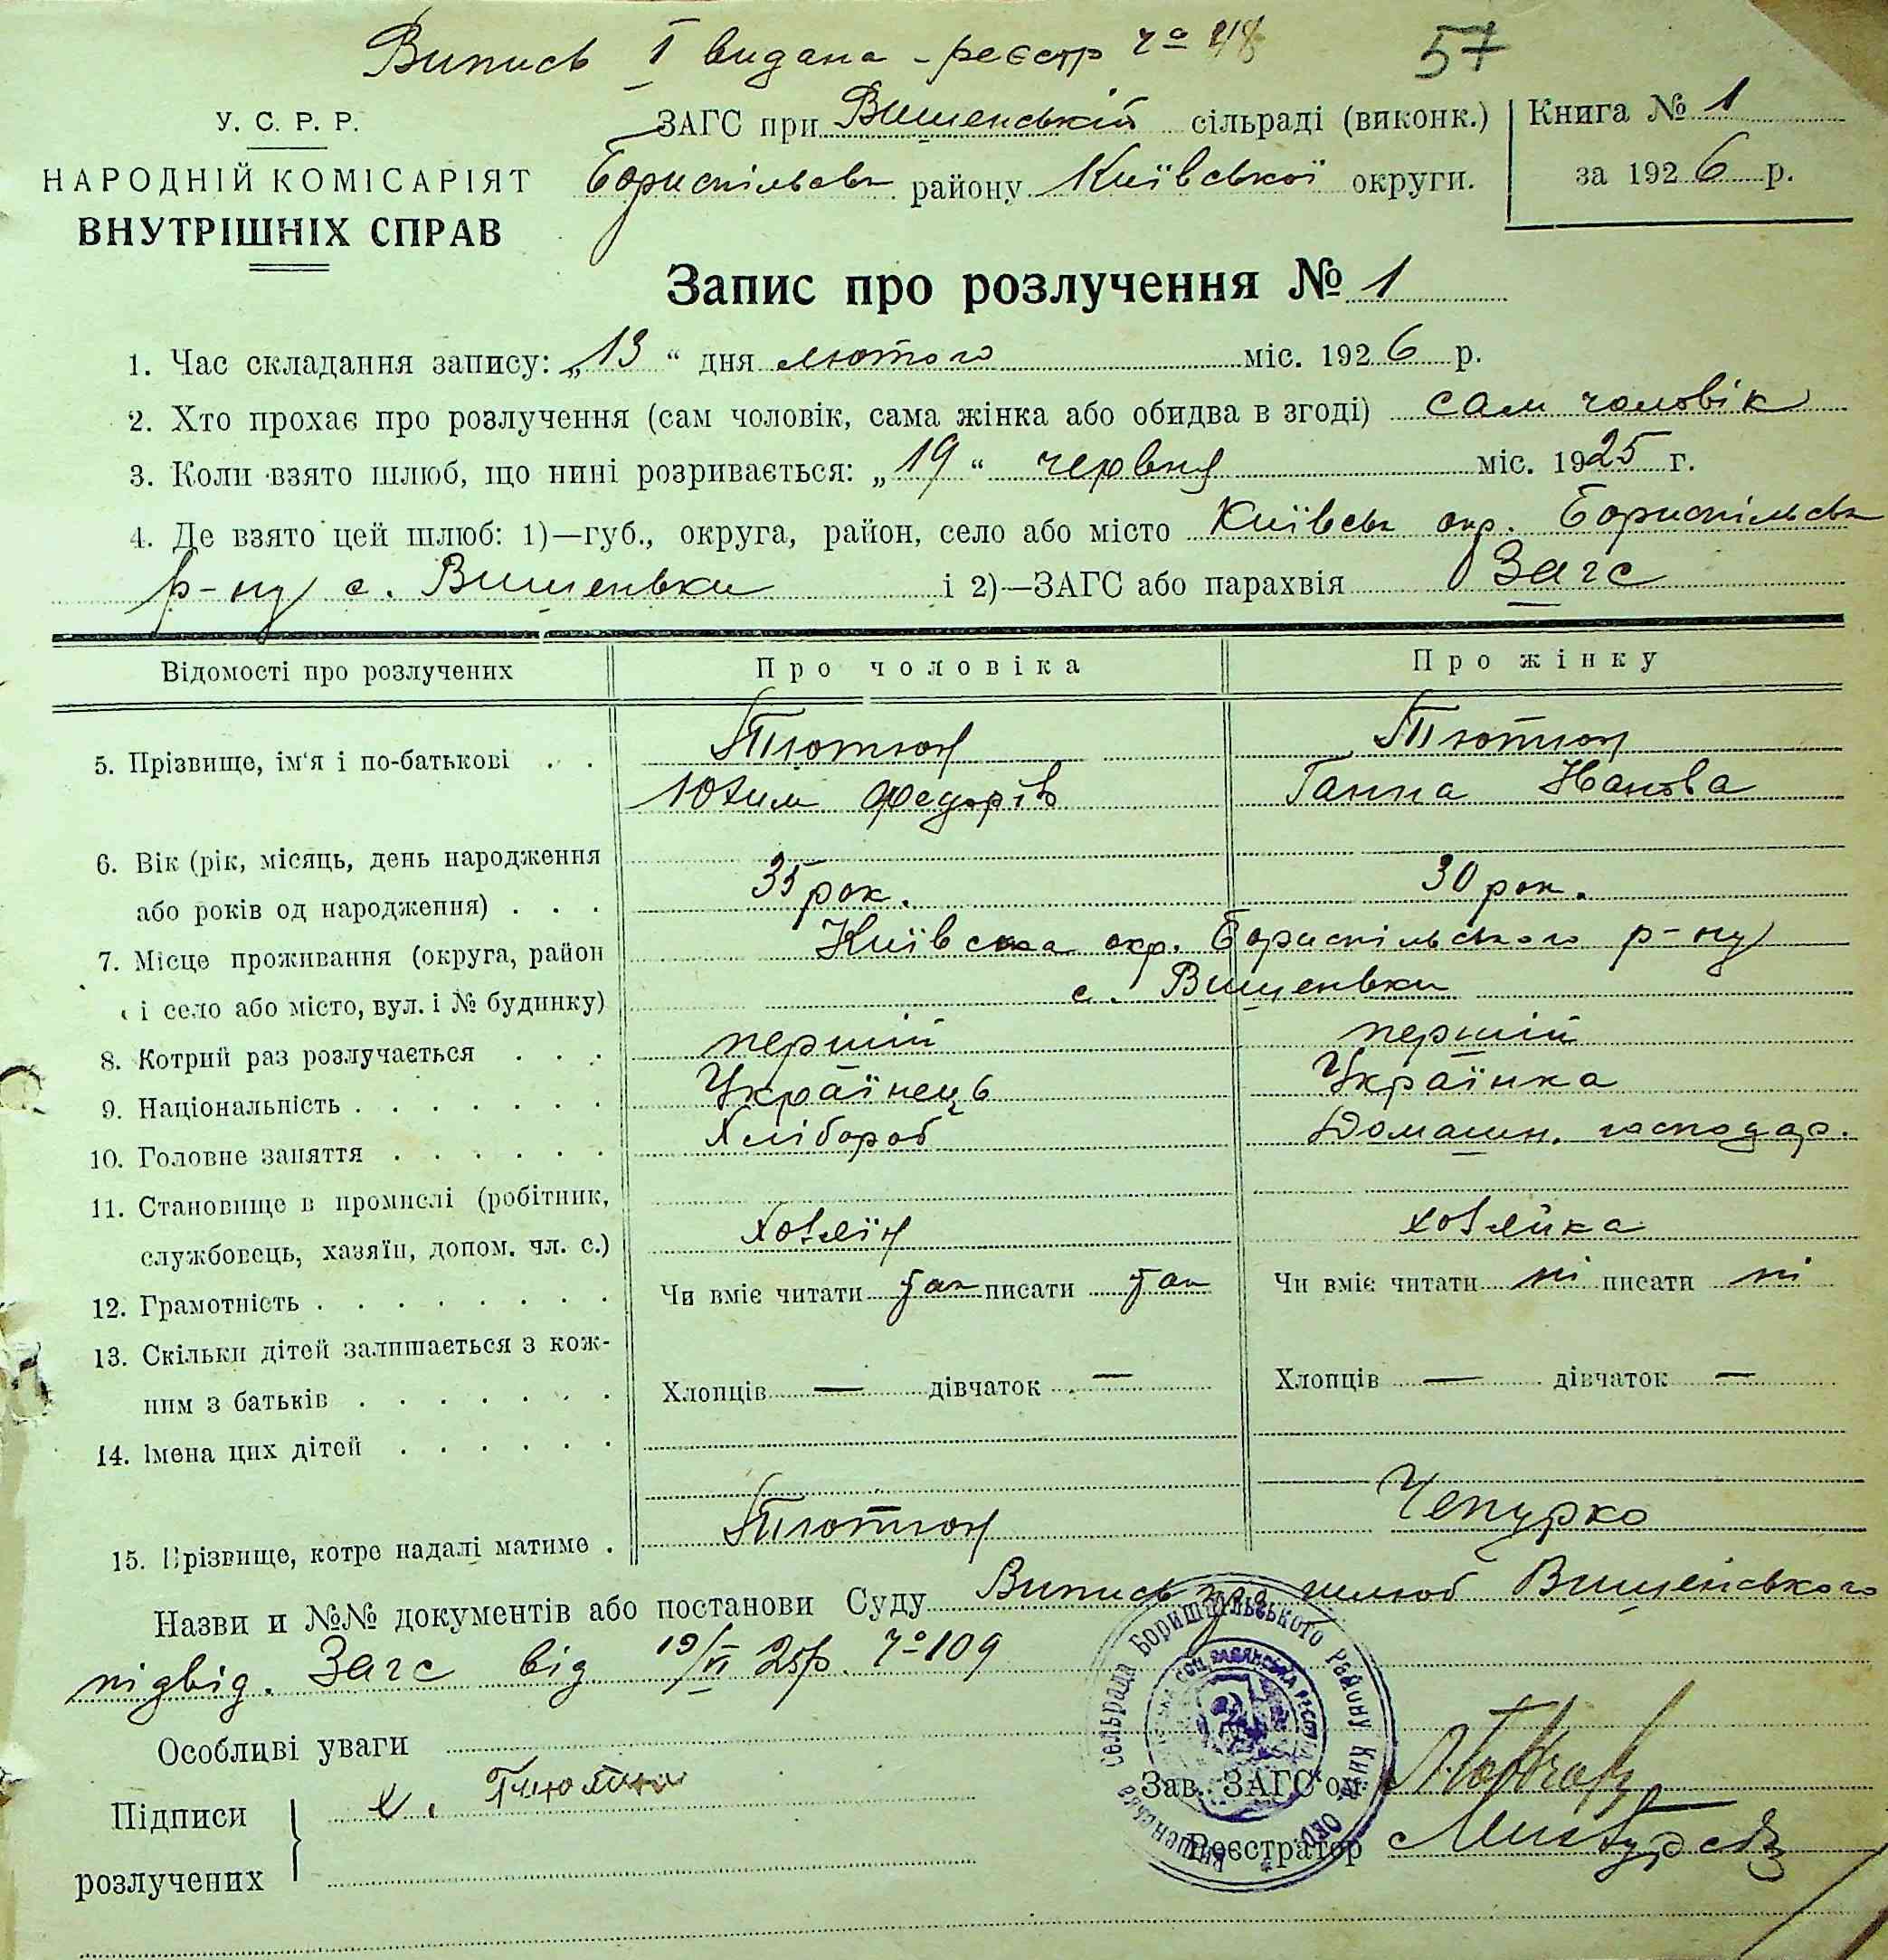 Випись I видана - реєстр № 57
У. С. Р. Р.
НАРОДНІЙ КОМІСАРІЯТ
ВНУТРІШНІХ СПРАВ
ЗАГС при Вишенській сільраді (виконк.)
Бориспільськ району Київської округи.
Книга № 1
за 1926 р.
Запис про розлучення № 1
1. Час складання запису: „13“ дня лютого міс. 1926 р.
2. Хто прохає про розлучення (сам чоловік, сама жінка або обидва в згоді) сам чоловік
3. Коли взято шлюб, що нині розривається: „19“ червня міс. 1925 г.
4. Де взято цей шлюб: 1)—губ., округа, район, село або місто Київськ окр. Бориспільськ
р-ну с. Вишеньки і 2)—ЗАГС або парахвія Загс
Відомості про розлучених Про чоловіка Про жінку
5. Прізвище, ім'я і по-батькові . . Тютюн Тютюн
Юхим Федорів Ганна Іванова
6. Вік (рік, місяць, день народження
або років од народження) . . . 35 рок. 30 рок.
7. Місце проживання (округа, район Київська окр. Бориспільського р-ну
і село або місто, вул. і № будинку) с. Вишеньки
8. Котрий раз розлучається . . . перший перший
9. Національність . . . . . . . Українець Українка
10. Головне заняття . . . . . . Хлібороб Домашн. господар.
11. Становище в промислі (робітник,
службовець, хазяїн, допом. чл. с.) хозяїн хозяйка
12. Грамотність . . . . . . . . Чи вміє читати так писати так Чи вміє читати ні писати ні
13. Скільки дітей залишається з кож-
ним з батьків . . . . . . . Хлопців — дівчаток — Хлопців — дівчаток —
14. Імена цих дітей . . . . . .
15. Прізвище, котре надалі матиме . Тютюн Чепурко
Назви и №№ документів або постанови Суду Випись про шлюб Вишенського
підвід. Загс від 19/VI 25р. № 109
Особливі уваги
Підписи
розлучених
х. Тютюн
Зав. ЗАГС'ом
Реєстратор
Вишенська сельрада Бориспільського Району Київ. Окр.